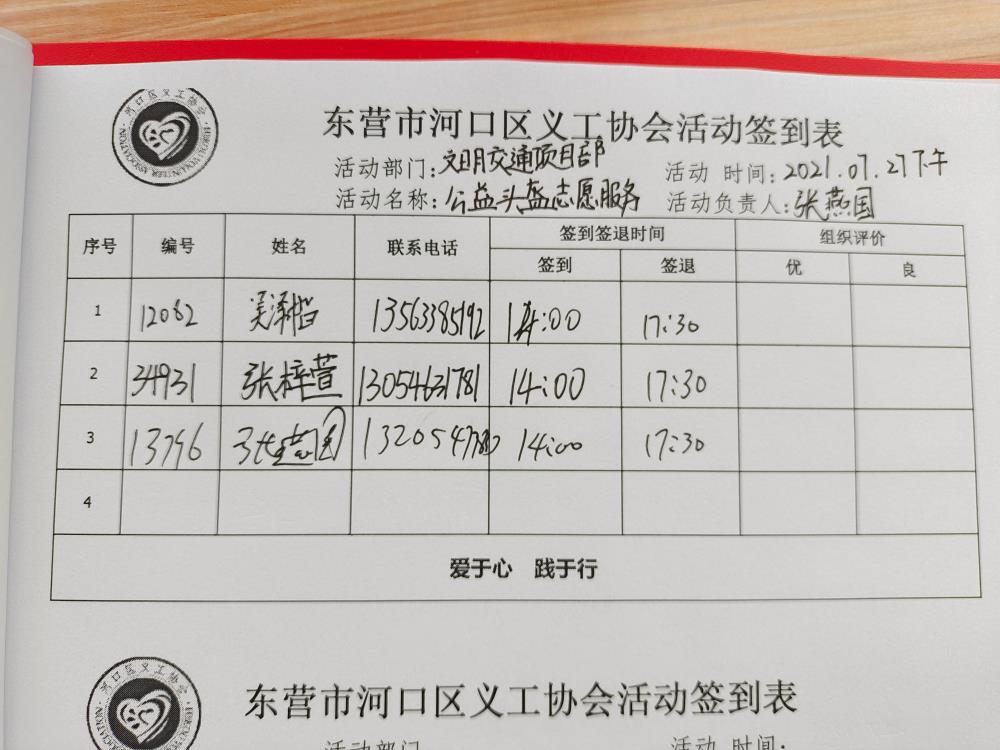 河口区义工协会
东营市河口区义工协会活动签到表
活动部门:文明交通项目部 活动 时间:2021.07.27下午
活动名称:公益头盔志愿服务 活动负责人:张燕国
序号 编号 姓名 联系电话 签到签退时间 组织评价
签到 签退 优 良
1 12082 吴泽楷 13563385192 14:00 17:30
2 34931 张梓萱 13054631781 14:00 17:30
3 13796 张燕国 14:00 17:30
4
爱于心 践于行
河口区义工协会
东营市河口区义工协会活动签到表
活动部门 活动 时间: